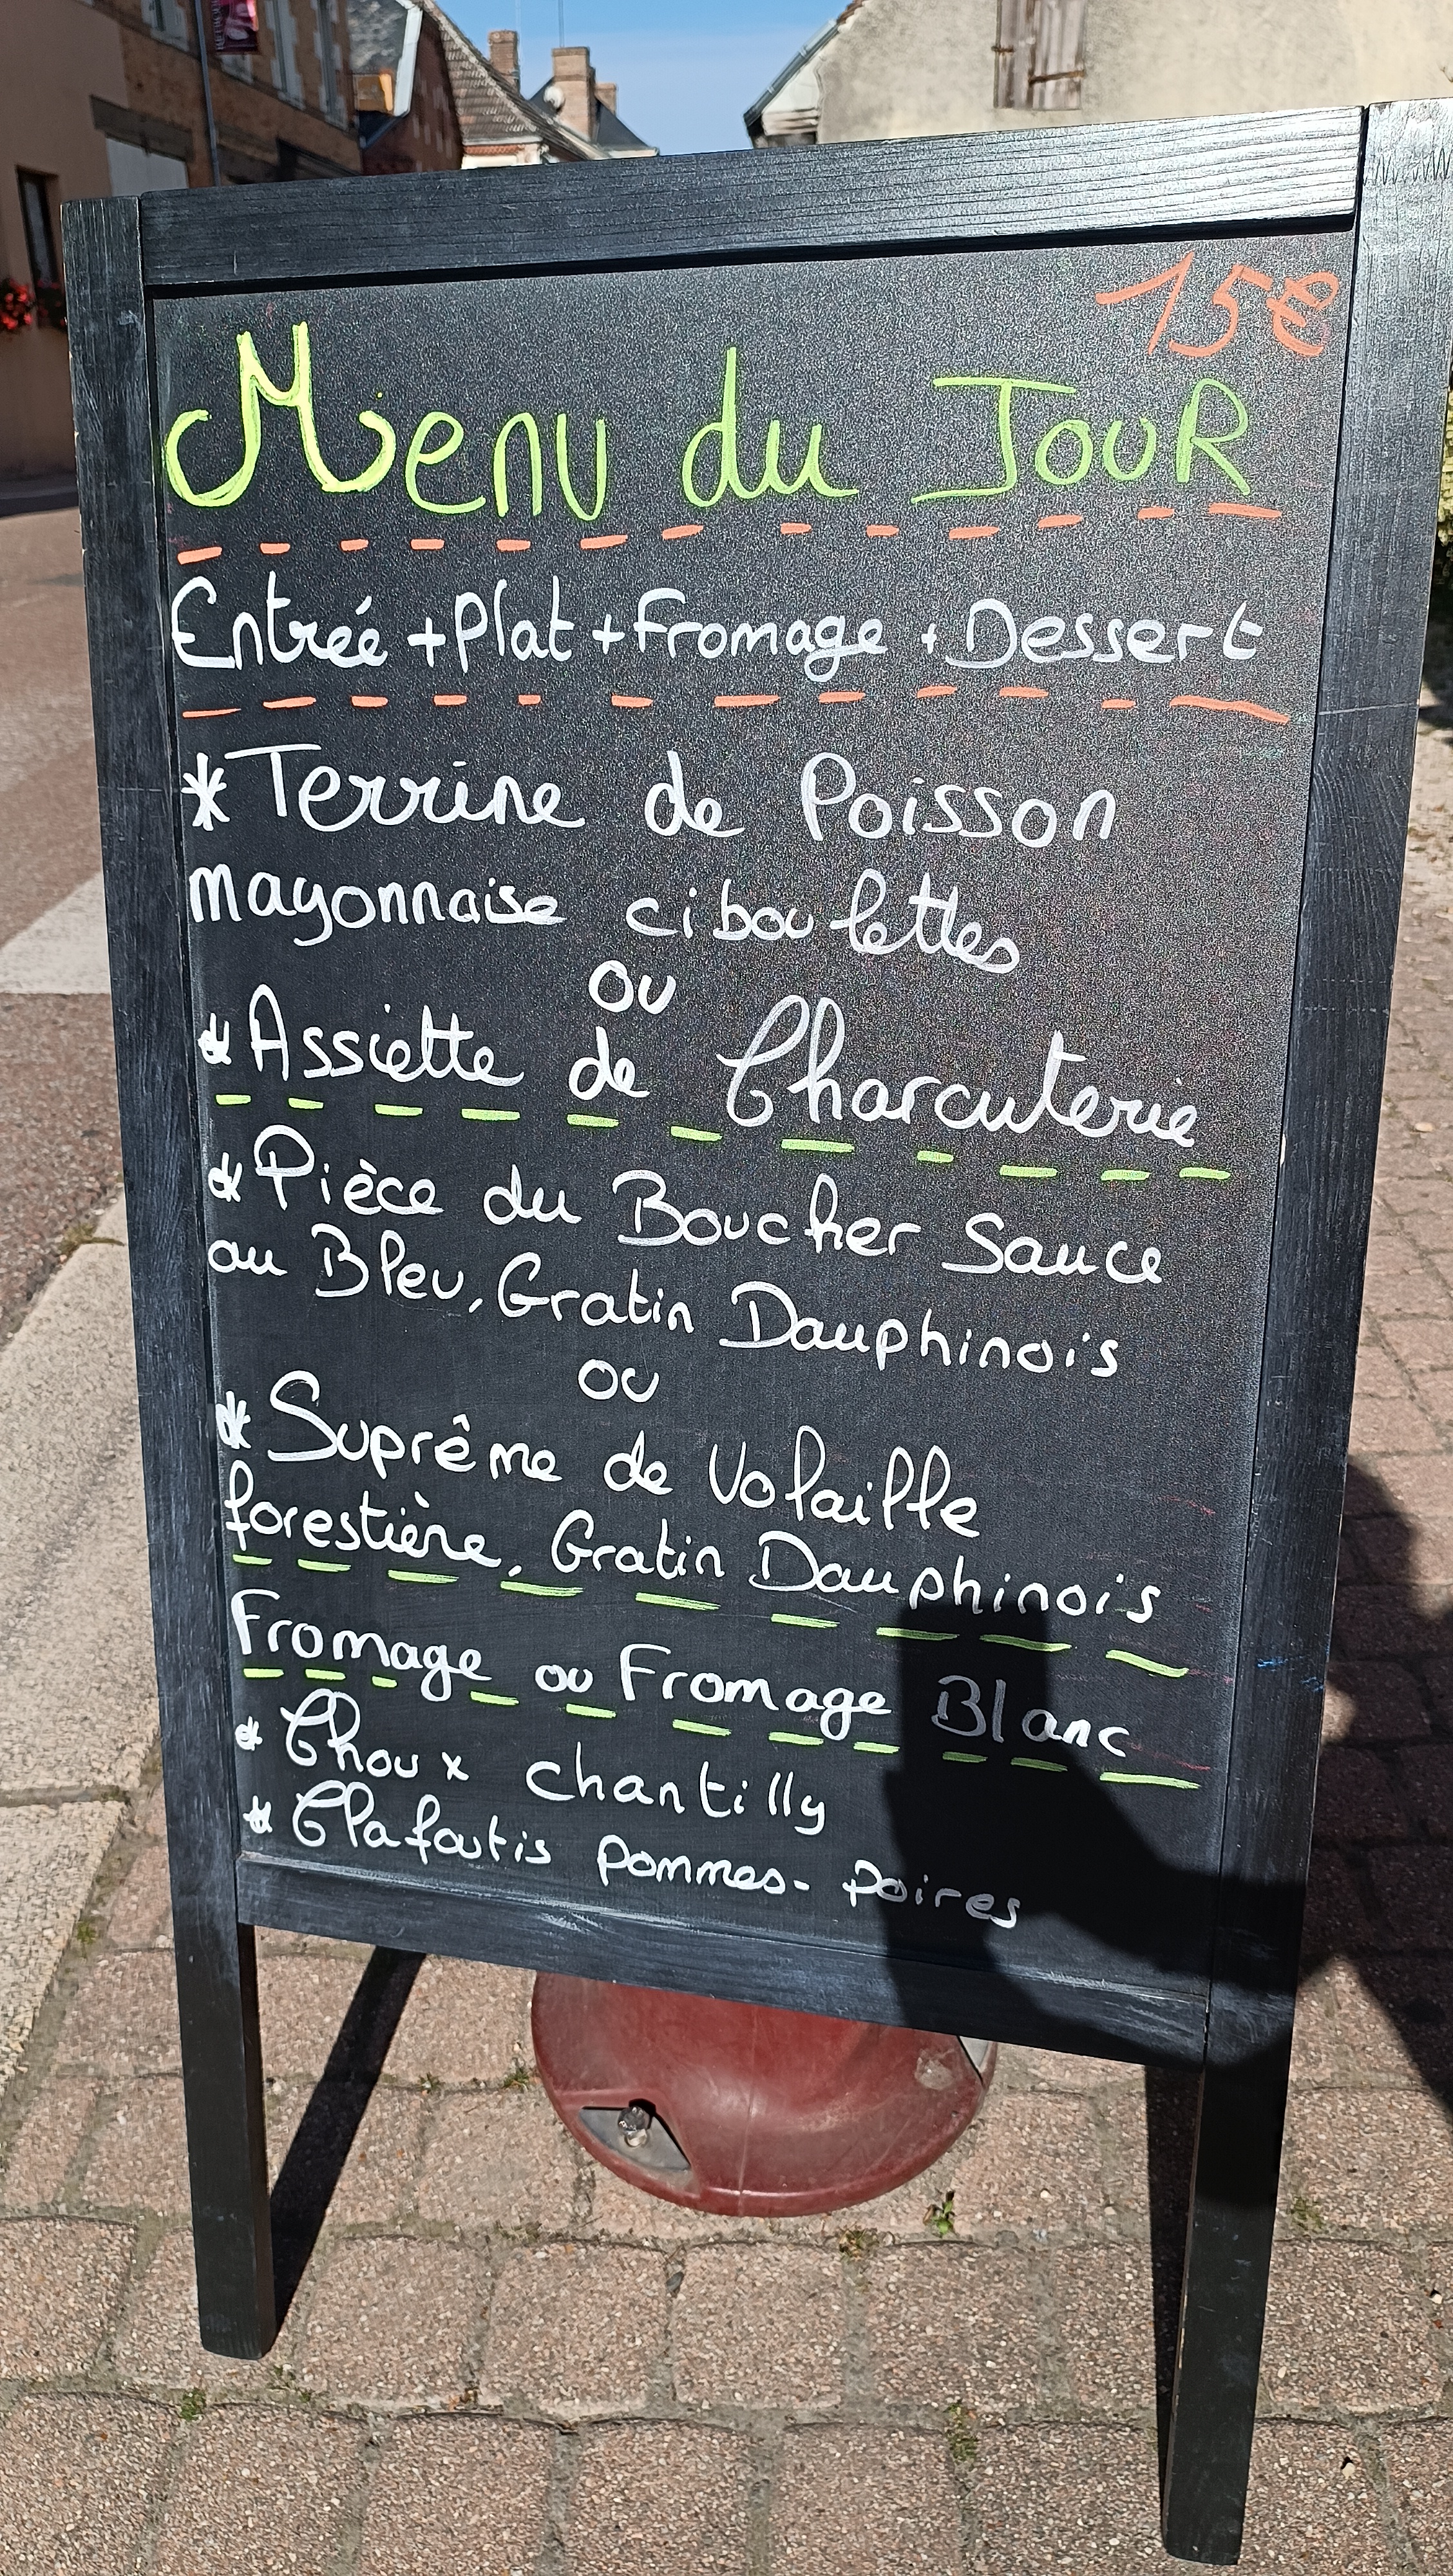 15€
Menu du JouR
Entrée + Plat + Fromage + Dessert
* Terrine de Poisson
mayonnaise ciboulettes
ou
* Assiette de Charcuterie
* Pièce du Boucher Sauce
au Bleu, Gratin Dauphinois
ou
* Suprême de Volaille
forestière, Gratin Dauphinois
Fromage ou Fromage Blanc
* Choux chantilly
* Clafoutis Pommes - Poires